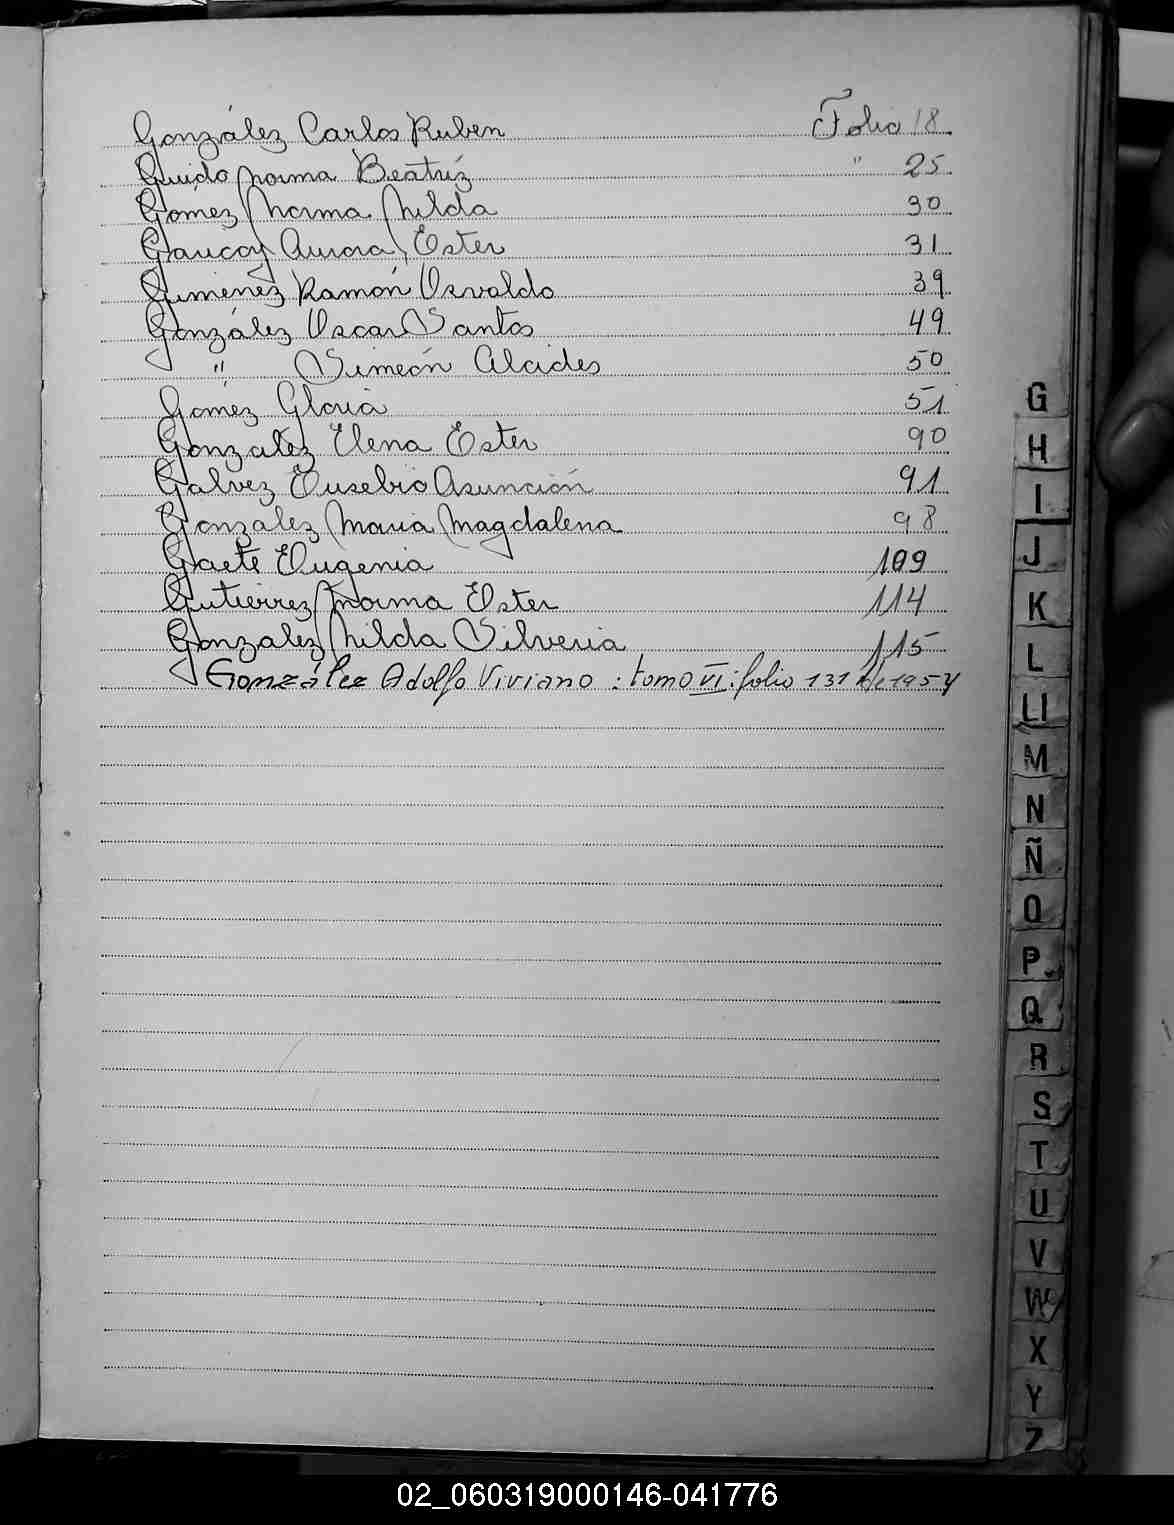 González Carlos Ruben Folio 18
Guido Norma Beatríz " 25
Gomez Norma Nilda 30
Garicoy Aurora Ester 31
Jimenez Ramón Osvaldo 39
González Oscar Santos 49
" Simeón Alcides 50
Gómez Gloria 51
Gonzalez Elena Ester 90
Galvez Eusebio Asunción 91
Gonzalez Maria Magdalena 98
Gaete Eugenia 109
Gutierrez Norma Ester 114
Gonzalez Nilda Silveria 115
González Adolfo Viviano : tomo VI : folio 131
G
H
I
J
K
L
Ll
M
N
Ñ
O
P
Q
R
S
T
U
V
W
X
Y
Z
02_060319000146-041776